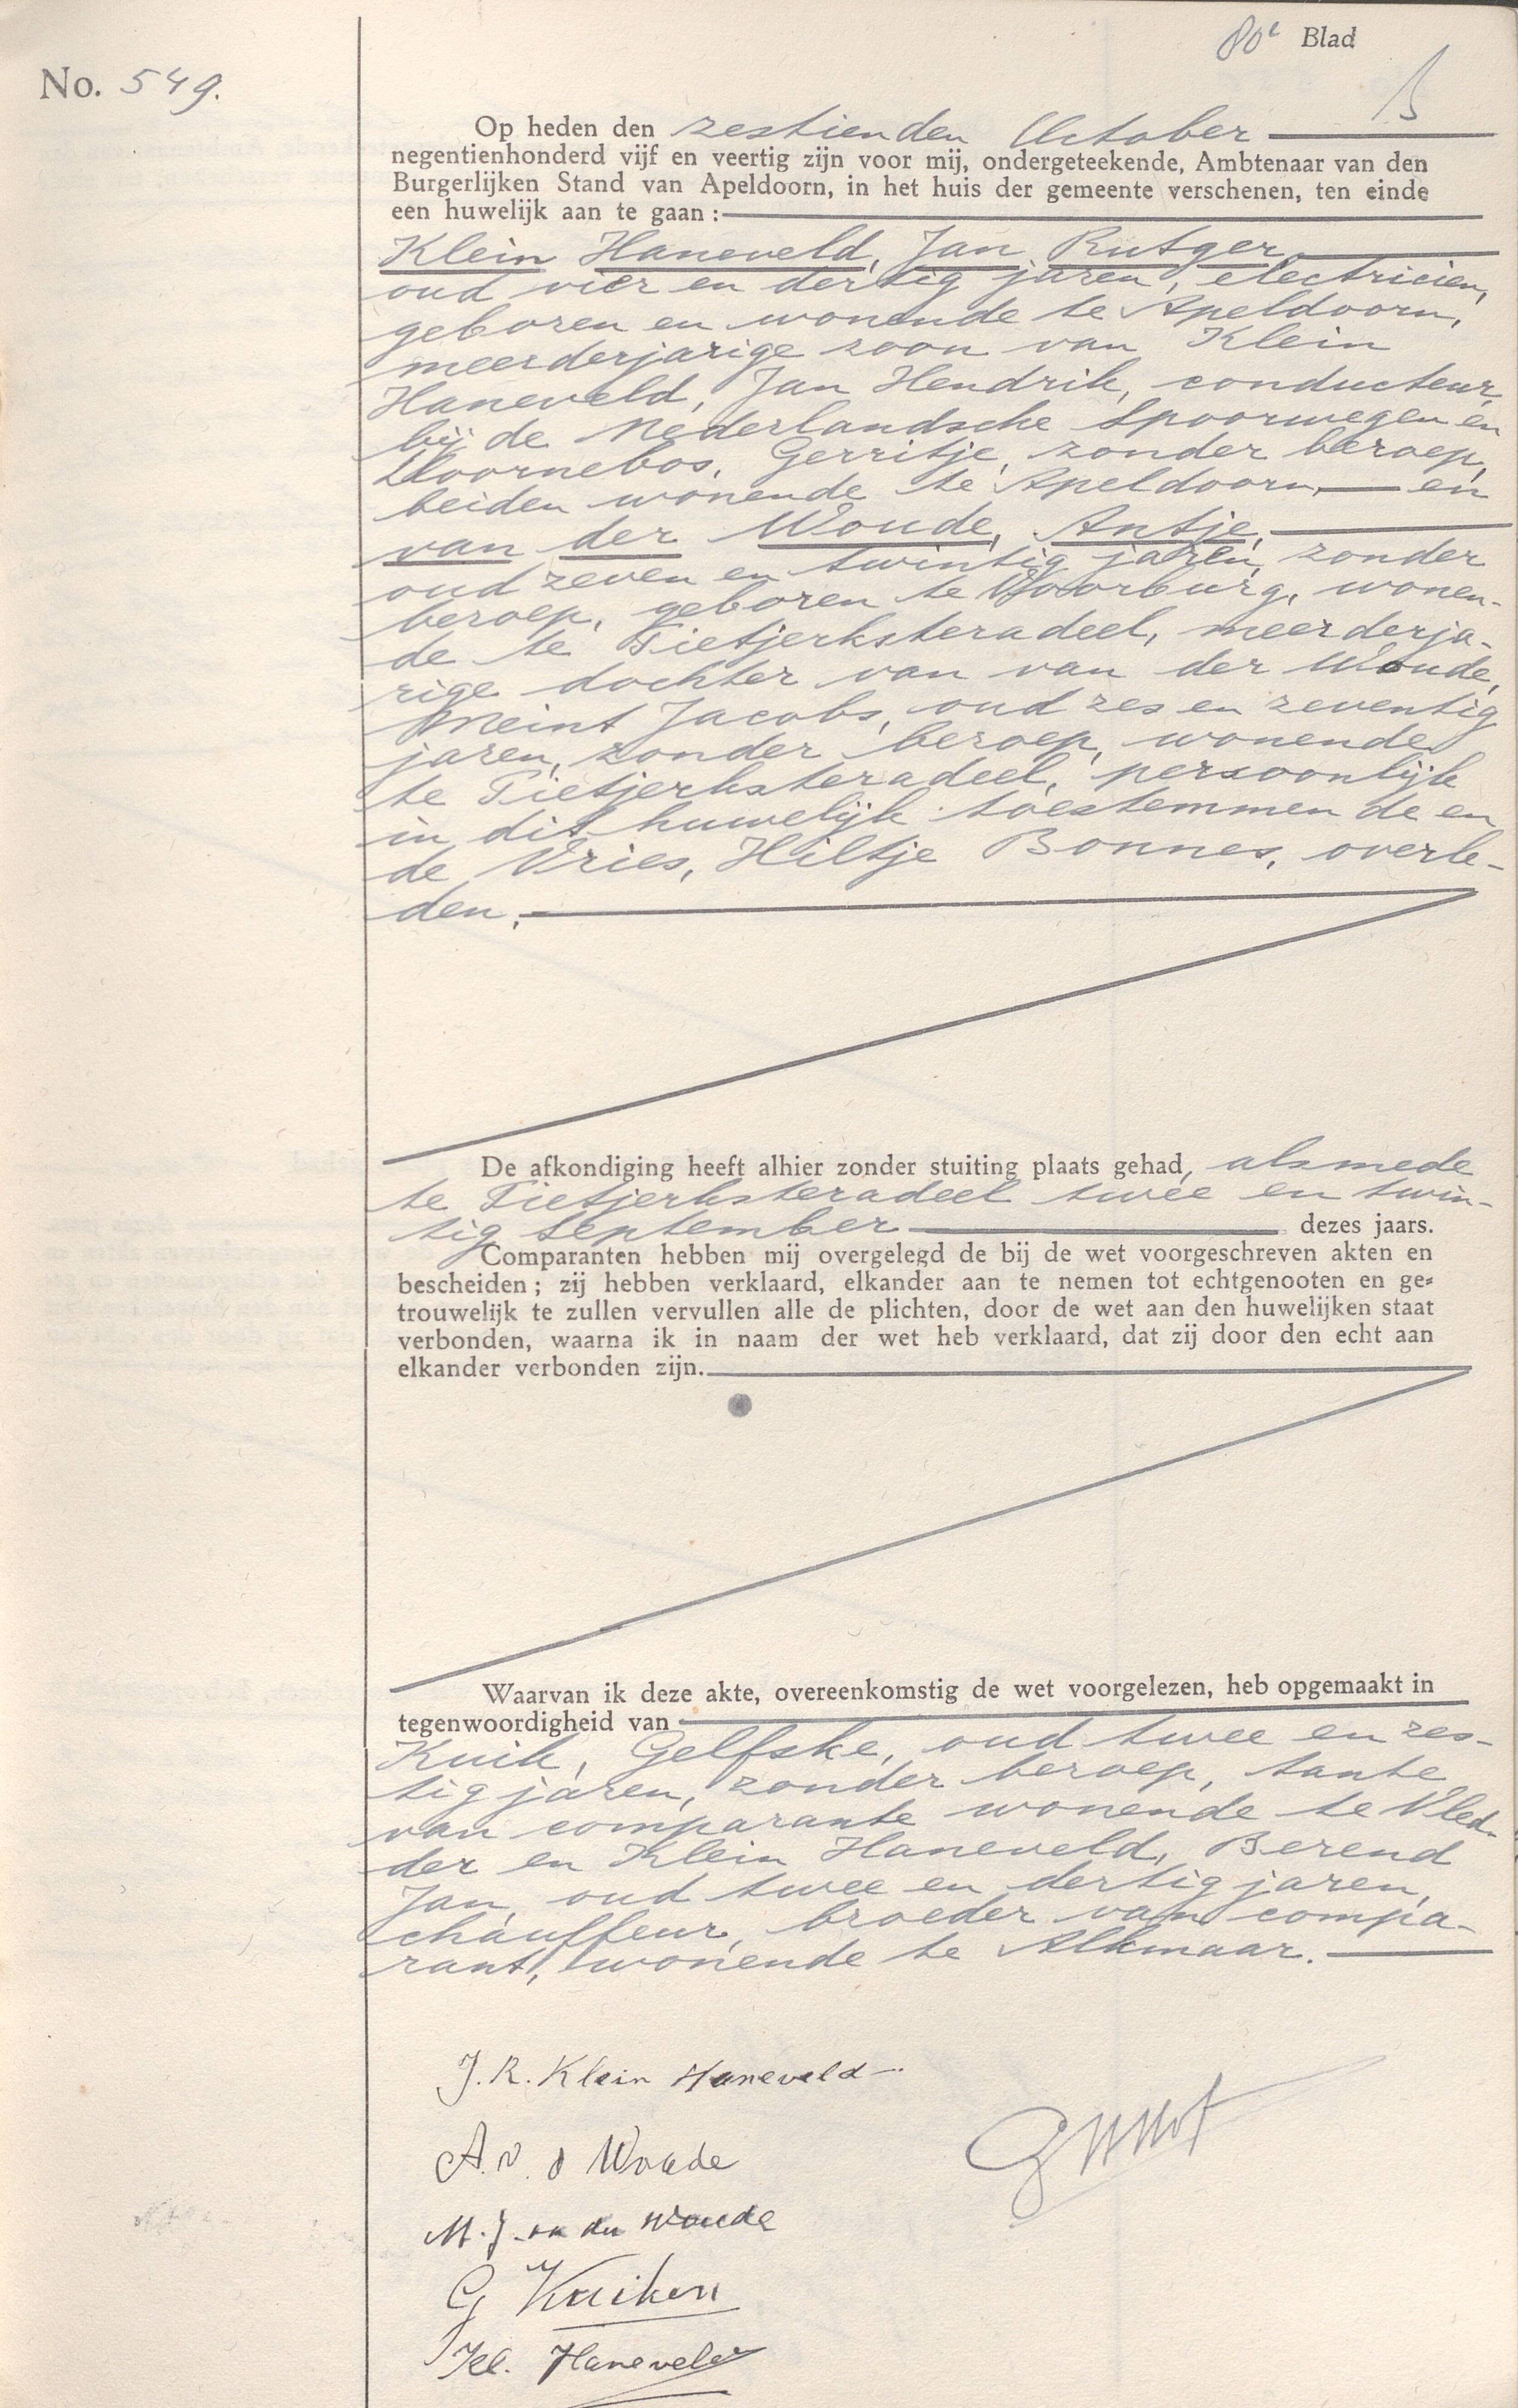 80e Blad
No. 549.
B
Op heden den zestienden October
negentienhonderd vijf en veertig zijn voor mij, ondergeteekende, Ambtenaar van den
Burgerlijken Stand van Apeldoorn, in het huis der gemeente verschenen, ten einde
een huwelijk aan te gaan:
Klein Haneveld, Jan Rutger,
oud vier en dertig jaren, electricien,
geboren en wonende te Apeldoorn,
meerderjarige zoon van Klein
Haneveld, Jan Hendrik, conducteur
bij de Nederlandsche Spoorwegen en
Doornebos, Gerritje, zonder beroep,
beiden wonende te Apeldoorn, en
van der Woude, Antje,
oud zeven en twintig jaren, zonder
beroep, geboren te Voorburg, wonen-
de te Tietjerksteradeel, meerderja-
rige dochter van van der Woude,
Meint Jacobs, oud zes en zeventig
jaren, zonder beroep, wonende
te Tietjerksteradeel, persoonlijk
in dit huwelijk toestemmende en
de Vries, Hiltje Bonnes, overle-
den,
De afkondiging heeft alhier zonder stuiting plaats gehad, alsmede
te Tietjerksteradeel twee en twin-
tig September dezes jaars.
Comparanten hebben mij overgelegd de bij de wet voorgeschreven akten en
bescheiden; zij hebben verklaard, elkander aan te nemen tot echtgenooten en ge-
trouwelijk te zullen vervullen alle de plichten, door de wet aan den huwelijken staat
verbonden, waarna ik in naam der wet heb verklaard, dat zij door den echt aan
elkander verbonden zijn.
Waarvan ik deze akte, overeenkomstig de wet voorgelezen, heb opgemaakt in
tegenwoordigheid van
Kuik, Gelfske, oud twee en zes-
tig jaren, zonder beroep, tante
van comparante wonende te Vled-
der en Klein Haneveld, Berend
Jan, oud twee en dertig jaren,
chauffeur, broeder van compa-
rant, wonende te Alkmaar.
J. R. Klein Haneveld
A. v. d Woude
M. J. van der Woude
G Kuiken
Kl. Haneveld